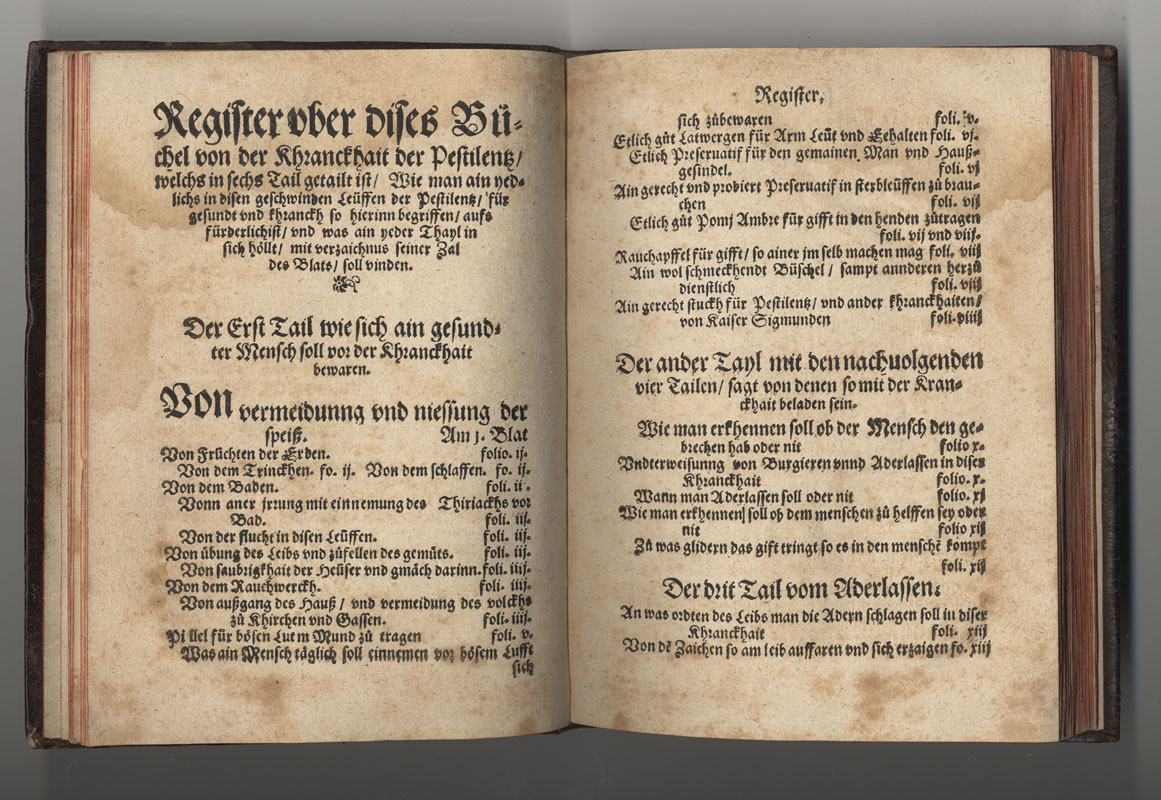 Register vber dises Bü-
chel von der Khranckhait der Pestilentz/
welchs in sechs Tail getailt ist/ Wie man ain yed-
lichs in disen geschwinden Leüffen der Pestilentz/ für
gesundt vnd khranckh so hierinn begriffen/ aufs
fürderlichist/ vnd was ain yeder Thayl in
sich höllt/ mit verzaichnus seiner Zal
des Blats/ soll vinden.
Der Erst Tail wie sich ain gesund-
ter Mensch soll vor der Khranckhait
bewaren.
Von vermeidunng vnd niessung der
speiß. Am j. Blat
Von Früchten der Erden. folio. ij.
Von dem Trinckhen. fo. ij. Von dem schlaffen. fo. ij.
Von dem Baden. foli. ii.
Vonn aner jrrung mit einnemung des Thiriackhs vor
Bad. foli. iij.
Von der flucht in disen Leüffen. foli. iij.
Von übung des Leibs vnd zůfellen des gemüts. foli. iij.
Von saubrigkhait der Heüser vnd gmäch darinn. foli. iiij.
Von dem Rauchwerckh. foli. iiij.
Von außgang des Hauß/ vnd vermeidung des volckhs
zů Khirchen vnd Gassen. foli. iiij.
Pi llel für bösen Lut m Mund zů tragen foli. v.
Was ain Mensch täglich soll einnemen vor bösem Lufft
sich
Register.
sich zůbewaren foli. v.
Etlich gůt Latwergen für Arm Leüt vnd Eehalten foli. vj.
Etlich Preseruatif für den gemainen Man vnd Hauß-
gesindel. foli. vij
Ain gerecht vnd probiert Preseruatif in sterbleüffen zů brau-
chen foli. vij
Etlich gůt Pomj Ambre für gifft in den henden zůtragen
foli. vij vnd viij.
Rauchapffel für gifft/ so ainer jm selb machen mag foli. viij
Ain wol schmeckhendt Büschel/ sampt annderen herzů
dienstlich foli. viij
Ain gerecht stuckh für Pestilentz/ vnd ander khranckhaiten/
von Kaiser Sigmunden foli. viiij
Der ander Tayl mit den nachuolgenden
vier Tailen/ sagt von denen so mit der Kran-
ckhait beladen sein.
Wie man erkhennen soll ob der Mensch den ge-
brechen hab oder nit folio x.
Vndterweisunng von Purgieren vnnd Aderlassen in diser
Khranckhait folio. x.
Wann man Aderlassen soll oder nit folio. xj
Wie man erkhennen soll ob dem menschen zů helffen sey oder
nit folio xij
Zů was glidern das gift tringt so es in den menschē kompt
foli. xij
Der drit Tail vom Aderlassen.
An was ordten des Leibs man die Adern schlagen soll in diser
Khranckhait foli. xiij
Von dē Zaichen so am leib auffaren vnd sich erzaigen fo. xiij